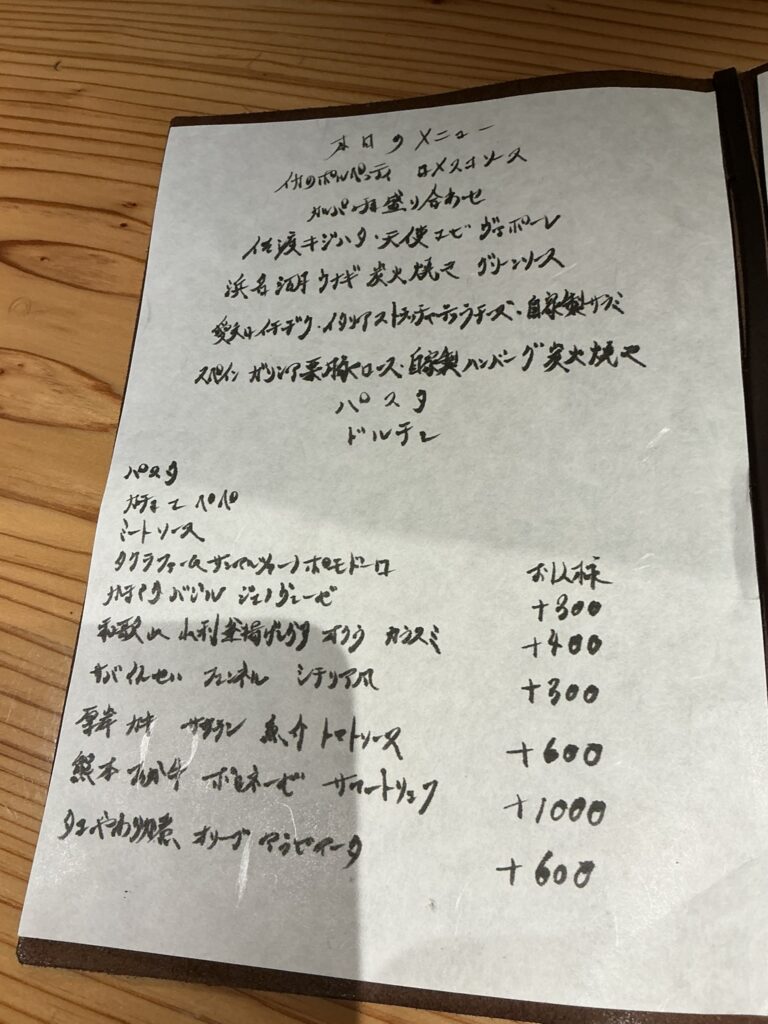 本日のメニュー
イカのポルペッティ ロメスコソース
盛り合わせ
佐渡キジハタ・天使エビ ヴァポーレ
浜名湖ウナギ炭火焼き グリーンソース
愛知イチヂク・イタリアストラッチャテッラチーズ・自家製サラミ
スペイン ガリシア栗豚ロース・自家製ハンバーグ炭火焼き
パスタ
ドルチェ
パスタ
カチョエペペ
ミートソース
タクラファームサンマルツァーノポモドーロ お1人様
バジル ジェノヴェーゼ +300
和歌山 釜揚げシラス オクラ カラスミ +400
サバ フェンネル シチリア風 +300
厚岸カキ サフラン 魚介トマトソース +600
熊本 あか牛 ボロネーゼ サマートリュフ +1000
タコやわらか煮 オリーブ アラビアータ +600